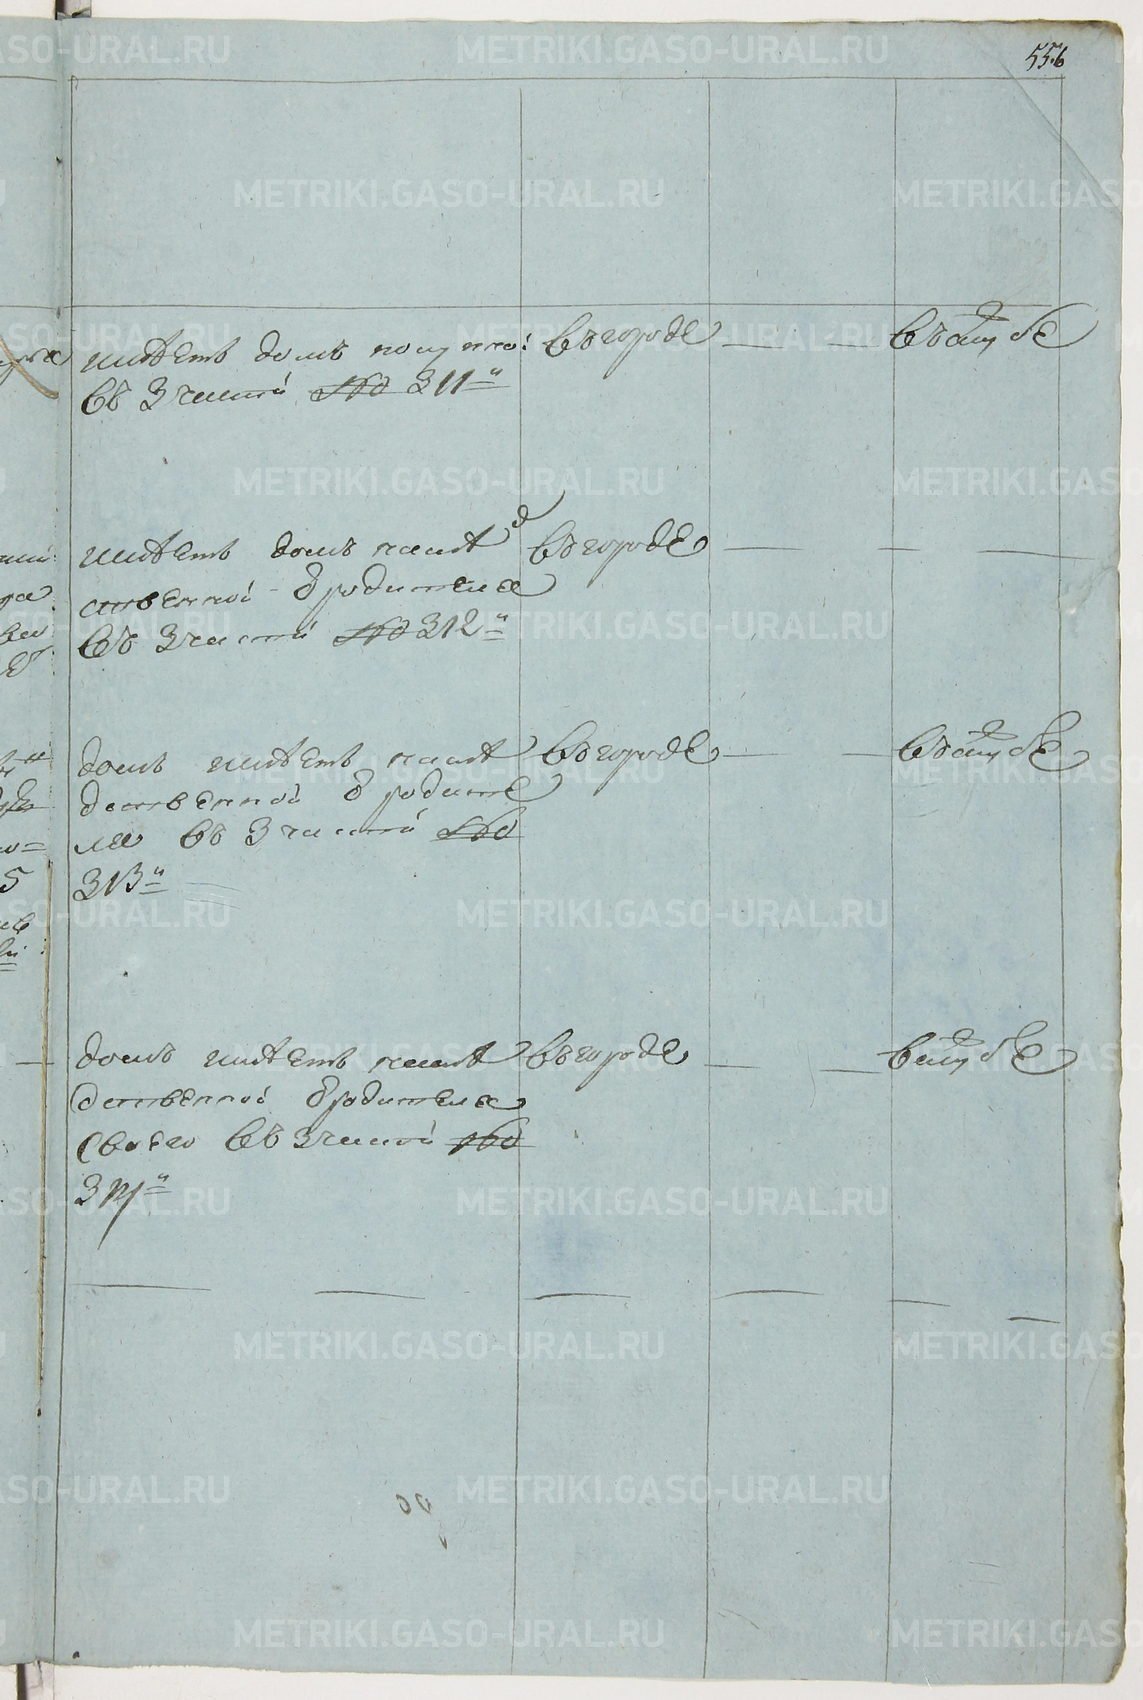 556
имѣетъ домъ покупно: въ городе — — въ службе
въ 3 части под № 311 й
имѣетъ домъ наслѣд въ городе — — —
ственной родителя
въ 3 части под № 312 й
домъ имѣетъ наслѣ въ городе — — въ службе
дственной родите
ля въ 3 части под №
313 й
домъ имѣетъ наслѣ въ городе — — в службе
дственной родителя
своего въ 3 части под №
314 й
METRIKI.GASO-URAL.RU